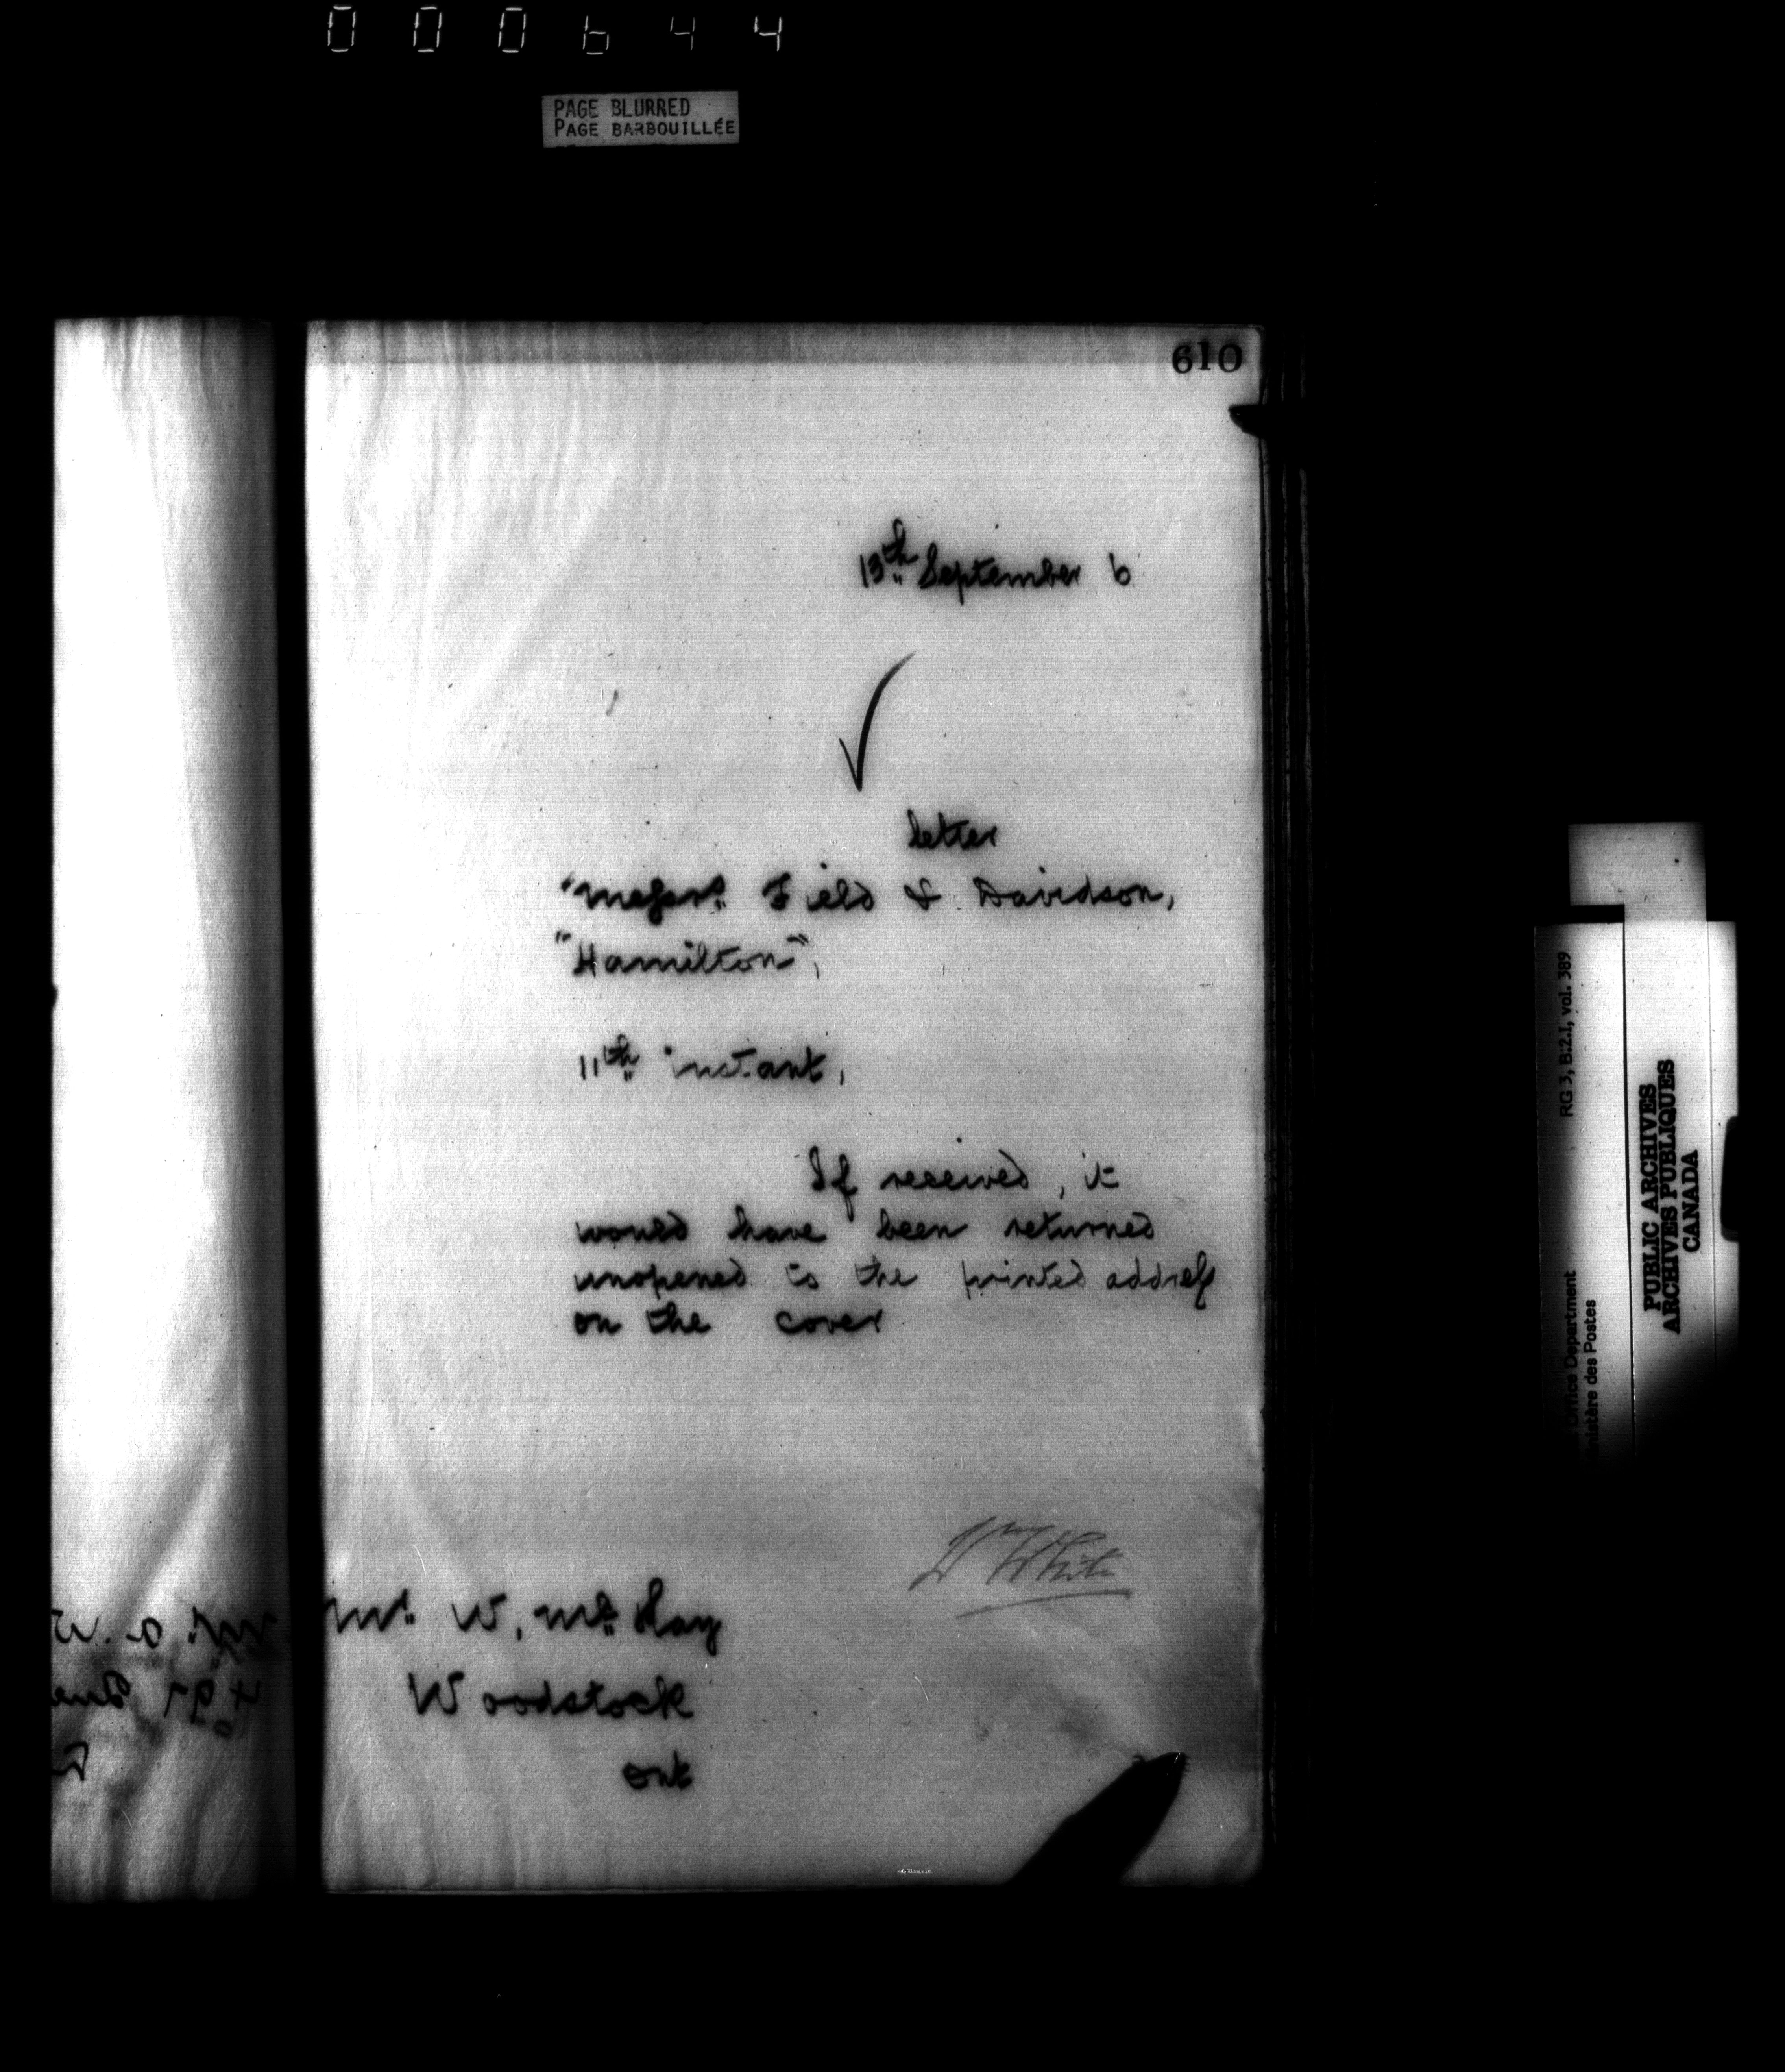 000644
PAGE BLURRED
PAGE BARBOUILLÉE
610
13th September 6
letter
"Messrs. Field & Davidson,
"Hamilton",
11th instant,
If received, it
would have been returned
unopened to the printed address
on the cover
Wm White
Mr. W. McKay
Woodstock
Ont
RG 3, B:2.1, vol. 389
Office Department
nistère des Postes
PUBLIC ARCHIVES
ARCHIVES PUBLIQUES
CANADA